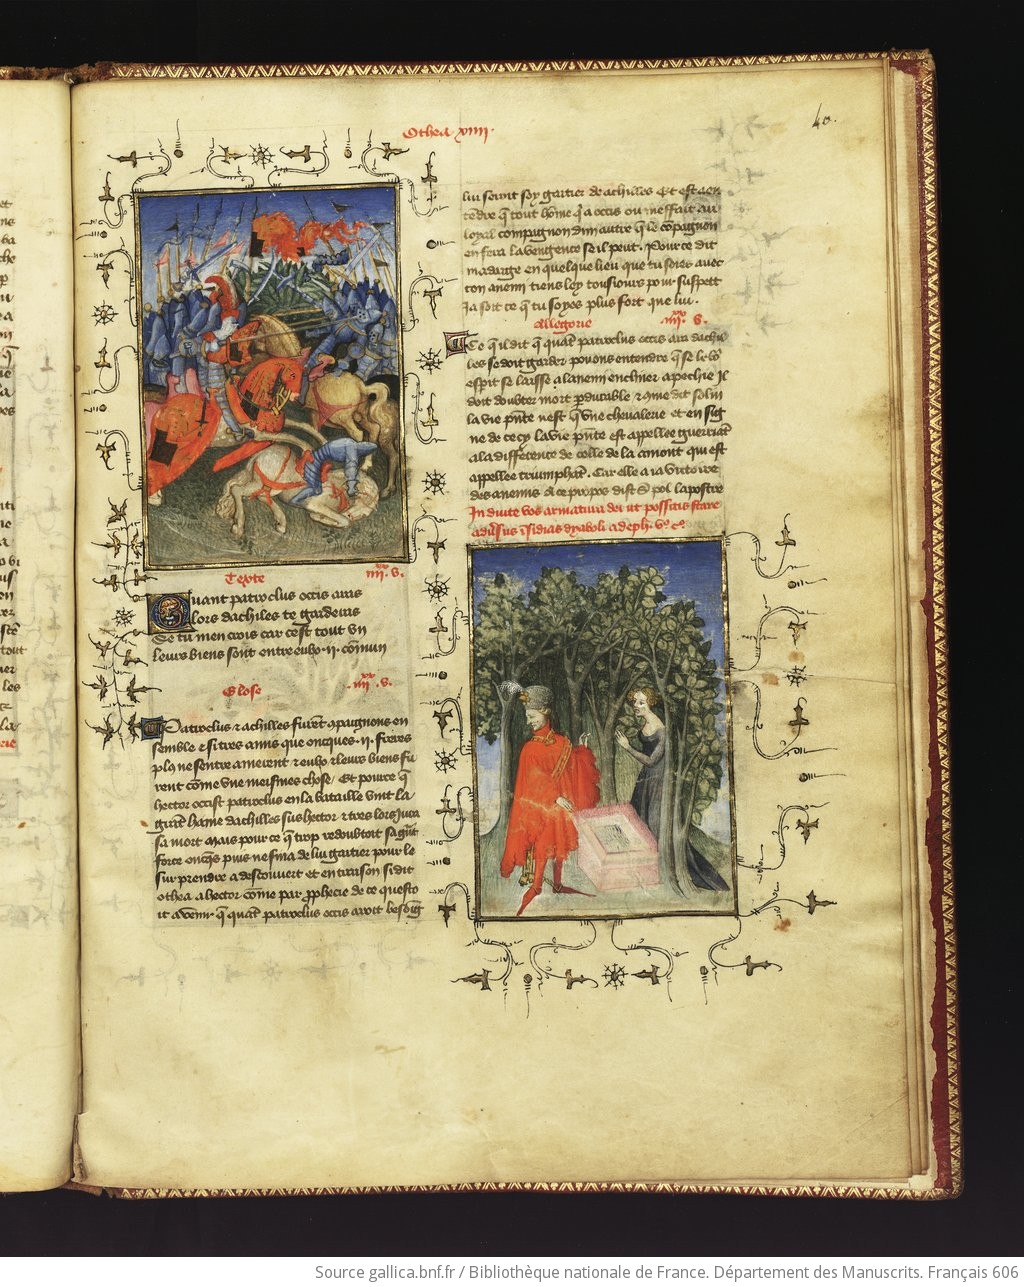 Othea xiiii.
40.
Texte iiii xx .v.
Quant patroclus occis aras
Lors dachiles te garderas
Se tu men crois car cest tout vn
Leurs biens sont entre eulx .ii. cōmun
Glose iiii xx .v.
Patroclus & achilles furēt cōpaignons en
semble & si tres amis que oncques .ii. freres
plꝯ ne sentre amerent & eulx & leurs biens fu
rent cōme vne meismes chose / Et pource q̄
hector occist patroclus en la bataille vint la
grāt haine dachilles sus hector & tres lors iura
sa mort mais pour ce q̄ trop redoubtoit sa grāt
force oncq̄s puis ne fina de lui gaitier pour le
surprendre a descouuert et en traison si dit
othea a hector cōme par ꝓphecie de ce questo
it a venir q̄ quāt patroclus occis aroit besoīg
lui seroit soy gaitier de achilles Et est a en
tēdre q̄ tout hōme q̄ a occis ou meffait a .i.
loyal compaignon dun autre q̄ le cōpagnon
en fera la vengence se il peut. Pour ce dit
madarge en quelque lieu que tu soies auec
ton anemi tiens ley tousiours pour suspett
Ja soit ce q̄ tu soyes plus fort que lui.
Allegorie iiii xx .v.
Ce q̄ il dit q̄ quāt patroclus occis ara dachil
les se doit garder pouons entendre q̄ se le bō
esprit se laisse a lanemi encliner a pechie Il
doit doubter mort ꝑdurable & cōme dit solin
la vie p̄nte nest q̄ vne cheualerie et en sig
ne de ce cy la vie p̄nte est appellee guerriāt
a la differente de celle de la amont qui est
appellee triumphāt. Car elle a ia victoire
des anemis A ce propos dist s̄ pol lapostre
Induite vos armatura dei ut possitis stare
aduersus īsidias dyaboli ad eph. vͦ. cͦ.
Source gallica.bnf.fr / Bibliothèque nationale de France. Département des Manuscrits. Français 606